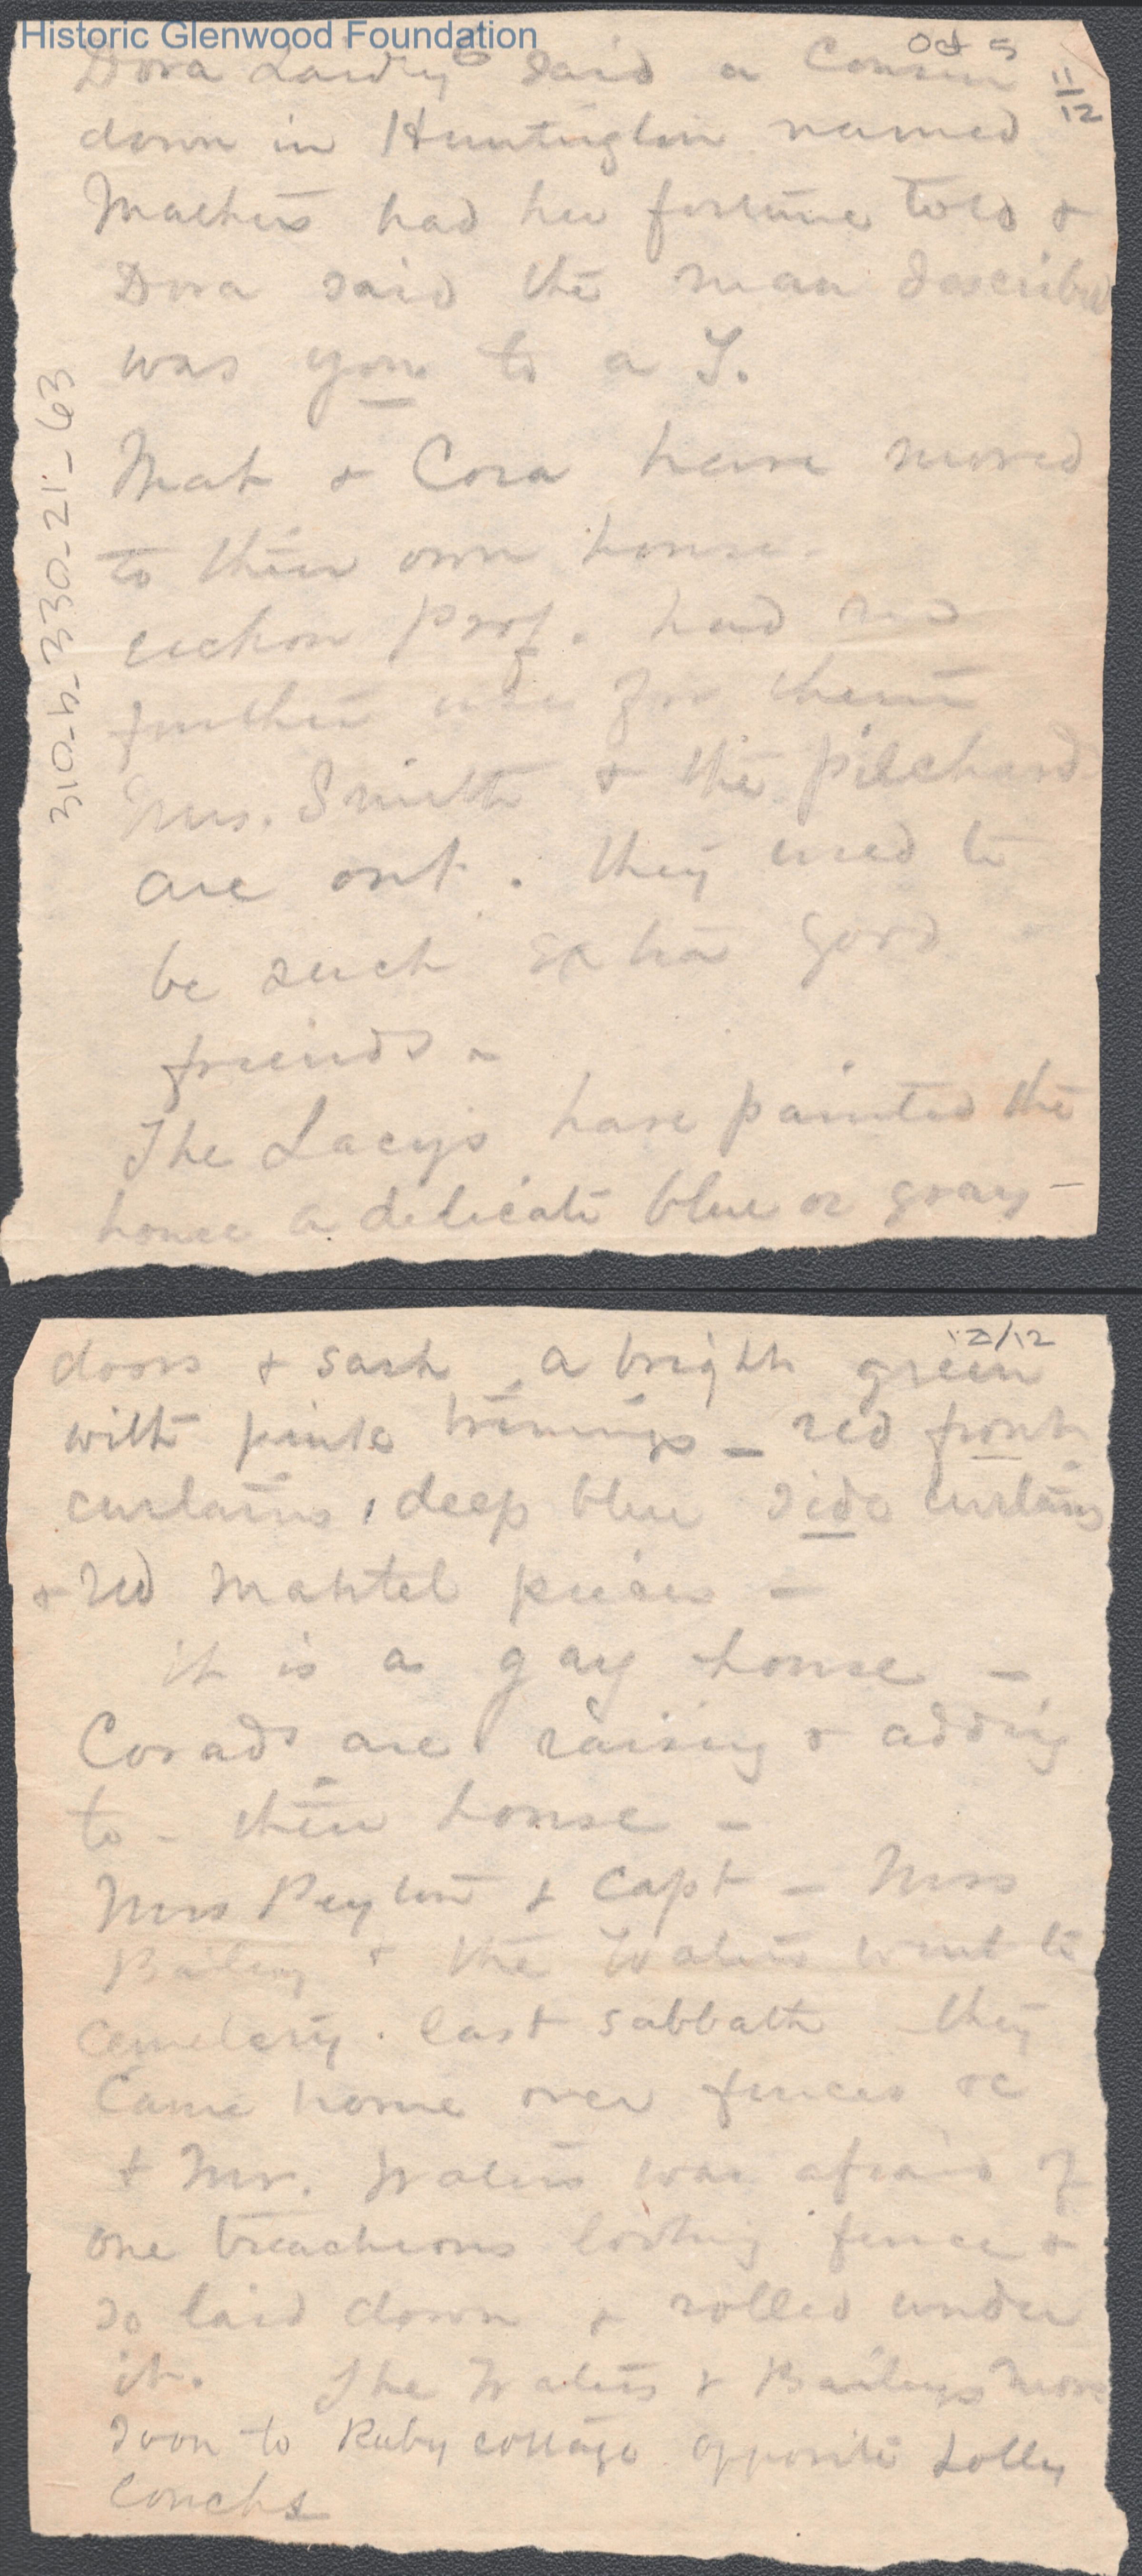 Historic Glenwood Foundation
Oct 5
11/12
Dora said a Cousin
down in Huntington named
Mathews had her fortune told &
Dora said the man described
was you to a T.
Mat & Cora have moved
to their own house.
Prof. had no
further use for them
Mrs. Smith & the Pilchard
are out. they used to
be such extra good
friends -
The Lacys have painted the
house a delicate blue or gray -
310-b-330-21-63
12/12
doors & sash a bright green
with pink trimings - red front
curtains, deep blue side curtains
& red mantel pieces -
it is a gay house -
Corads are raising & adding
to - their house -
Mrs Peyton & Capt - Mrs
Bailey & the Waters went to
cemetery. last sabbath they
came home over fences &c
& Mr. Waters was afraid of
one treacherous looking fence &
so laid down & rolled under
it. The Waters & Baileys move
soon to Ruby cottage opposite Lolly
Couchs